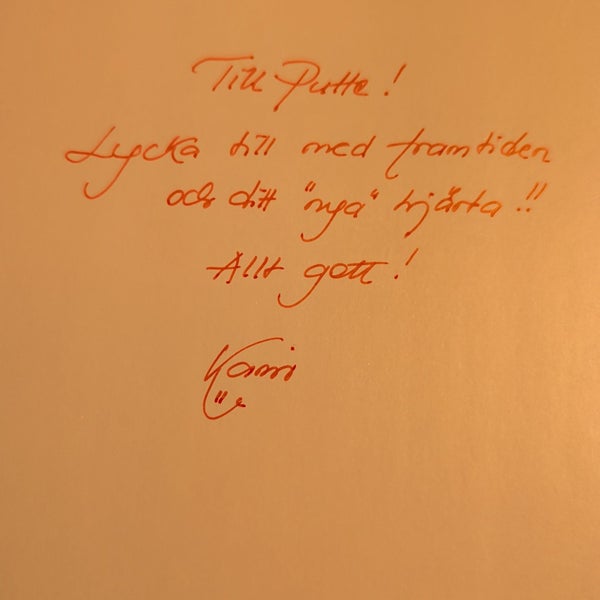 Till Putte!
Lycka till med framtiden
och ditt "nya" hjärta!!
Allt gott!
Karin